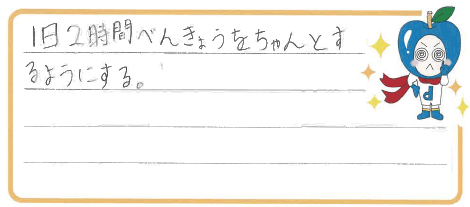 1日2時間べんきょうをちゃんとす
るようにする。
d